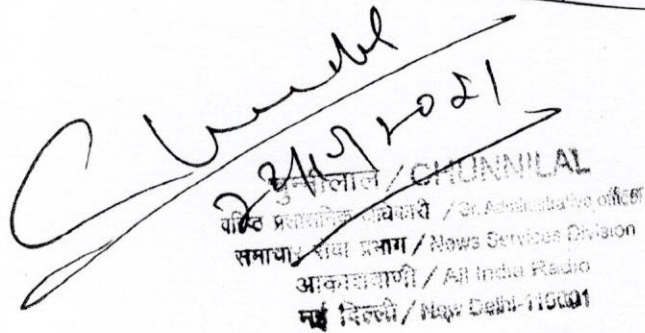 चुन्नीलाल / CHUNNILAL
वरिष्ठ प्रशासनिक अधिकारी / Sr. Administrative officer
समाचार सेवा प्रभाग / News Services Division
आकाशवाणी / All India Radio
नई दिल्ली / New Delhi-110001